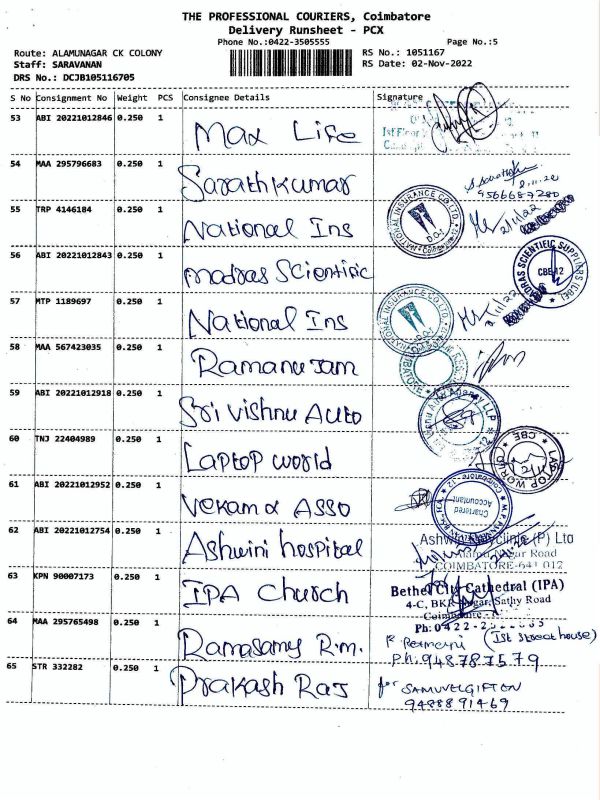 THE PROFESSIONAL COURIERS, Coimbatore
Delivery Runsheet - PCX
Phone No.:0422-3505555 Page No.:5
Route: ALAMUNAGAR CK COLONY RS No.: 1051167
Staff: SARAVANAN RS Date: 02-Nov-2022
DRS No.: DCJB105116705
S No Consignment No Weight PCS Consignee Details Signature
53 ABI 20221012846 0.250 1 Max Life
Ist Floor
54 MAA 295796683 0.250 1 Sarathkumar
9566687280
55 TRP 4146184 0.250 1 National Ins 2/11/22
NATIONAL INSURANCE CO LTD.
56 ABI 20221012843 0.250 1 Madras Scientific
MADRAS SCIENTIFIC SUPPLIERS (CBE)
CBE-12
57 MTP 1189697 0.250 1 National Ins 2/11/22
NATIONAL INSURANCE CO LTD.
58 MAA 567423035 0.250 1 Ramanujam
59 ABI 20221012918 0.250 1 Sri Vishnu Auto
60 TNJ 22404989 0.250 1 Laptop world
LAPTOP WORLD CBE
61 ABI 20221012952 0.250 1 Vekam & ASSO
Chartered
Accountant
62 ABI 20221012754 0.250 1 Ashwini hospital
Ashwini Clinic (P) Ltd
Nagar Road
COIMBATORE-641 012
63 KPN 90007173 0.250 1 IPA Church
Bethel City Cathedral (IPA)
4-C, BKR Nagar, Sathy Road
Coimbatore
Ph: 0422-2
64 MAA 295765498 0.250 1 Ramasamy R.m.
(Ist Street house)
Ph: 948787579
65 STR 332282 0.250 1 Prakash Raj
for SAMUVELGIFTON
9488891469